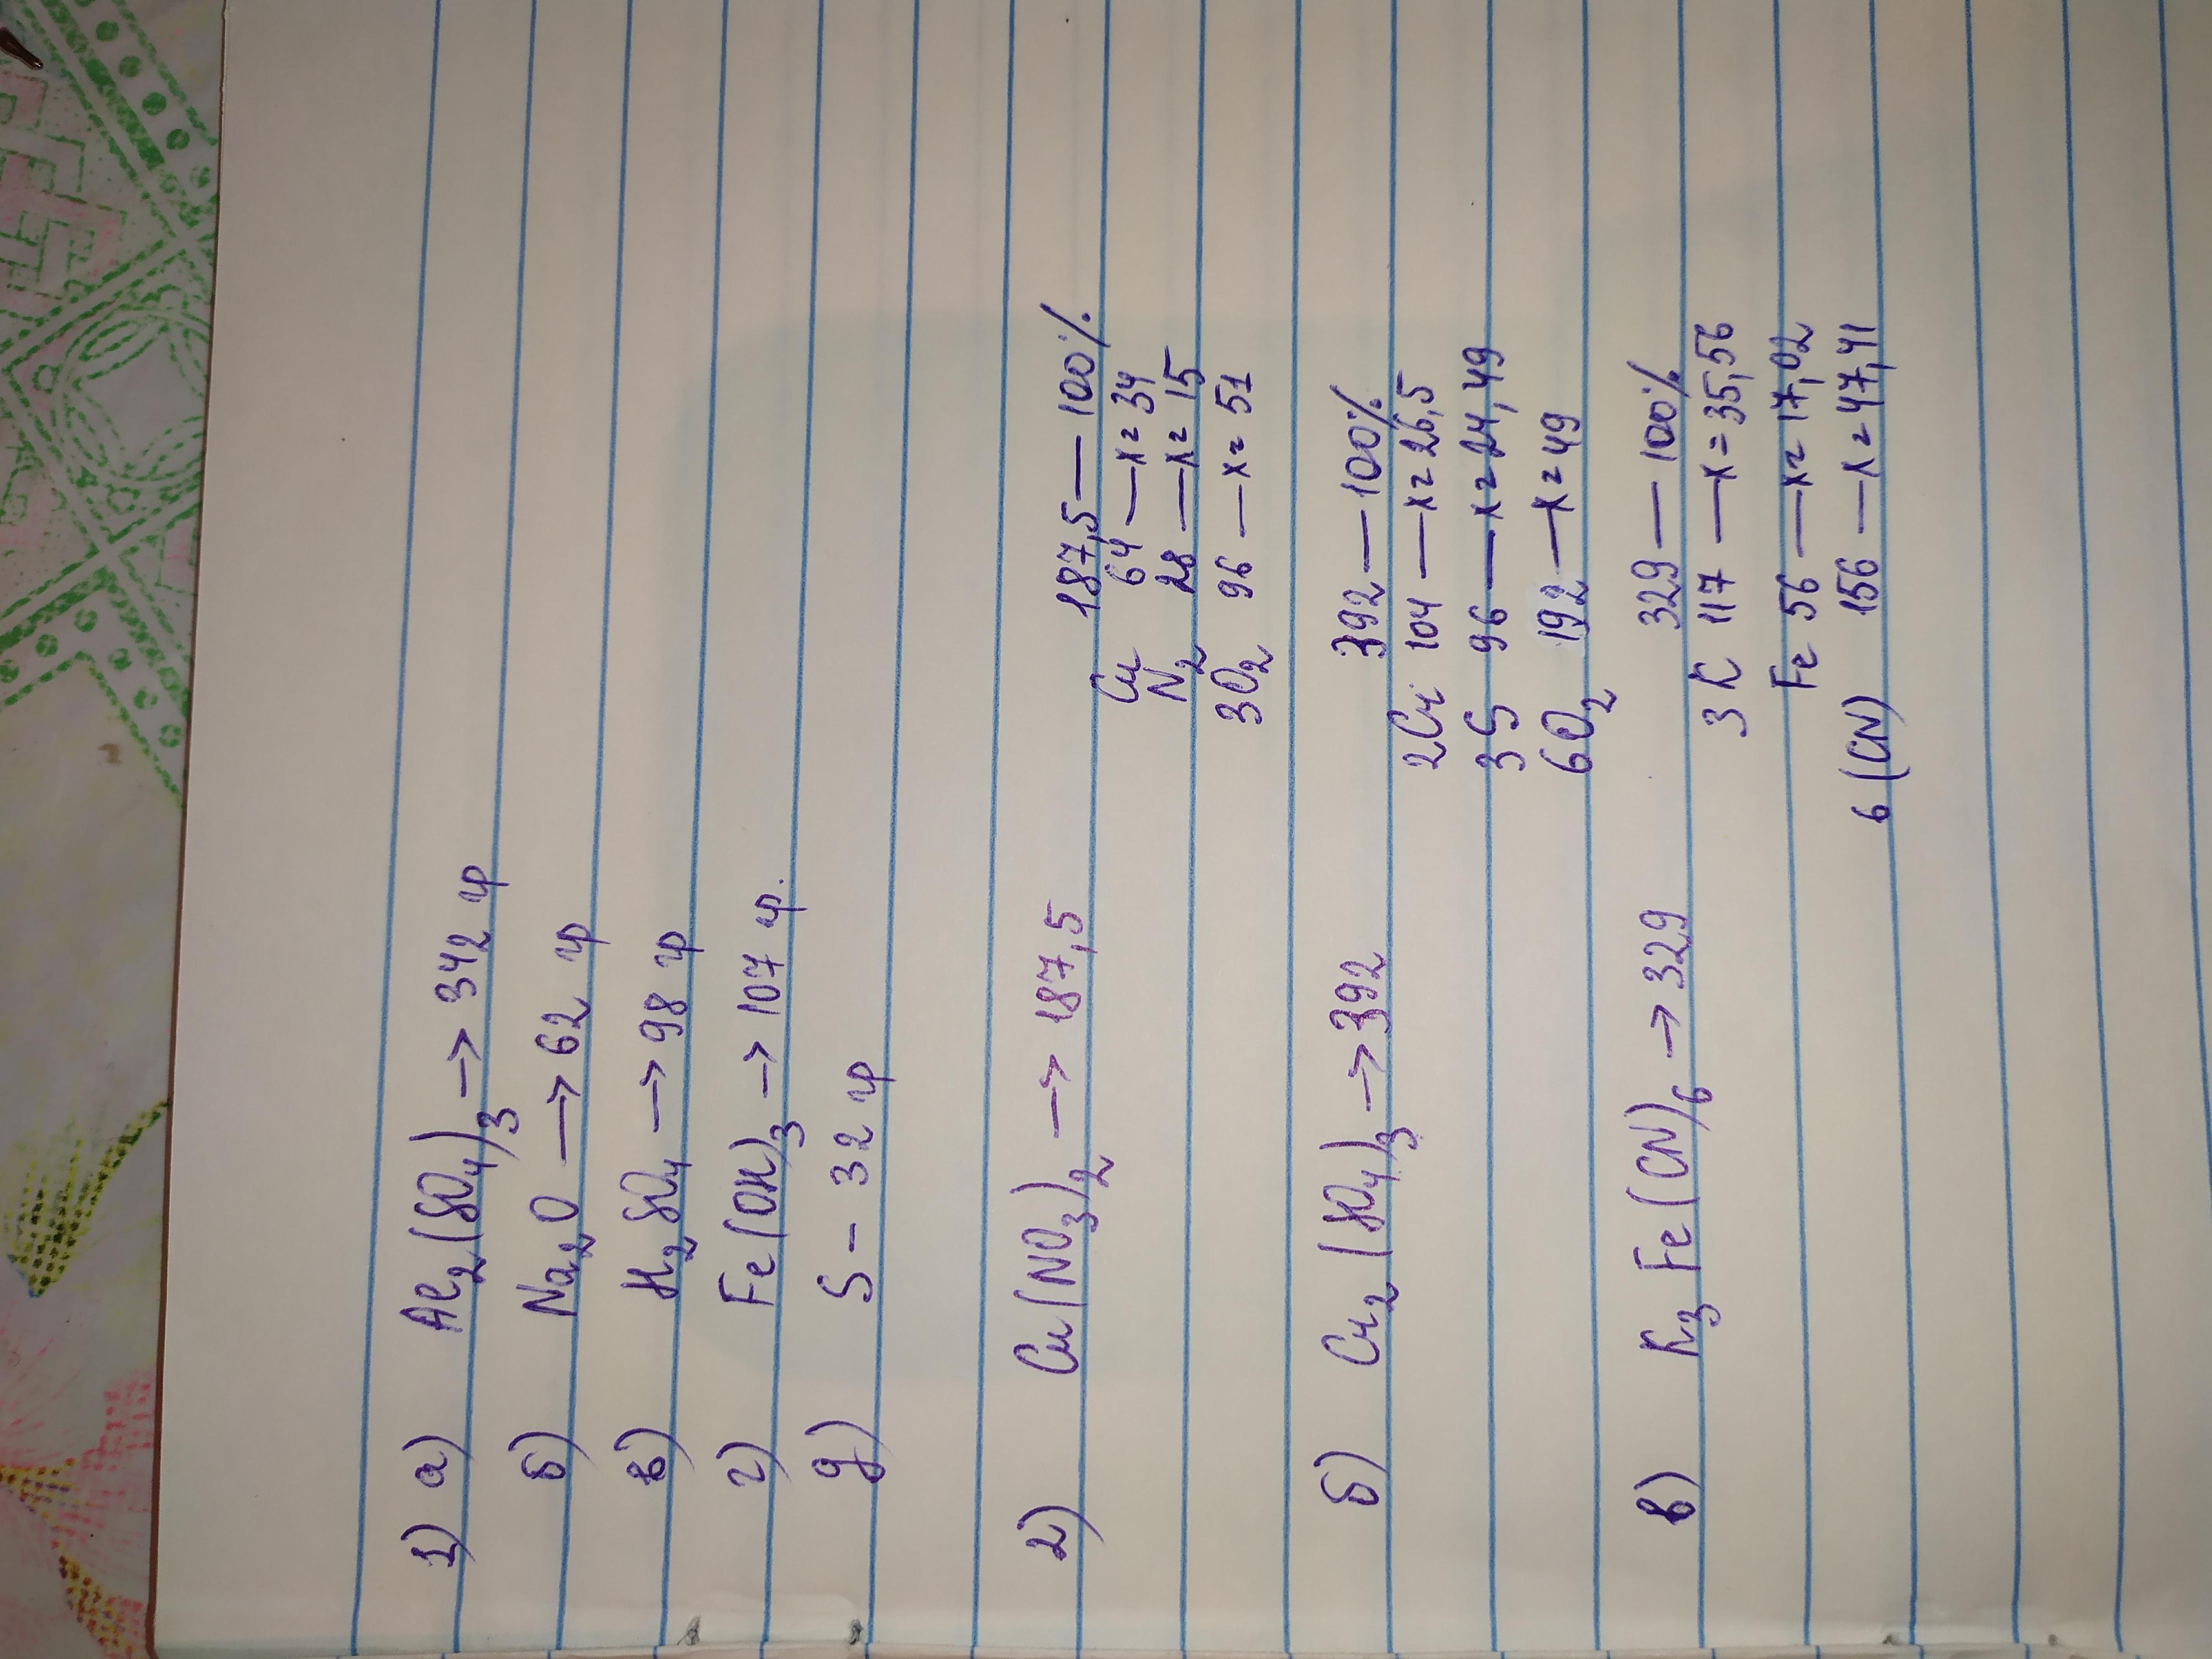 1) а) Al₂(SO₄)₃ → 342 гр
б) Na₂O → 62 гр
в) H₂SO₄ → 98 гр
г) Fe(OH)₃ → 107 гр.
д) S - 32 гр
2) Cu(NO₃)₂ → 187,5 187,5 — 100%
Cu 64 — x = 34
N₂ 28 — x = 15
3O₂ 96 — x = 51
б) Cr₂(SO₄)₃ → 392 392 — 100%
2Cr 104 — x = 26,5
3S 96 — x = 24,49
6O₂ 192 — x = 49
в) K₃Fe(CN)₆ → 329 329 — 100%
3K 117 — x = 35,56
Fe 56 — x = 17,02
6(CN) 156 — x = 47,41